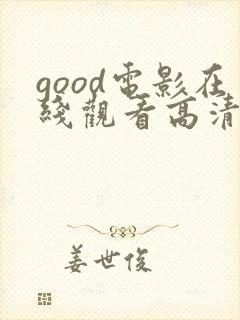 good電影在
綫觀看高清
姜世俊